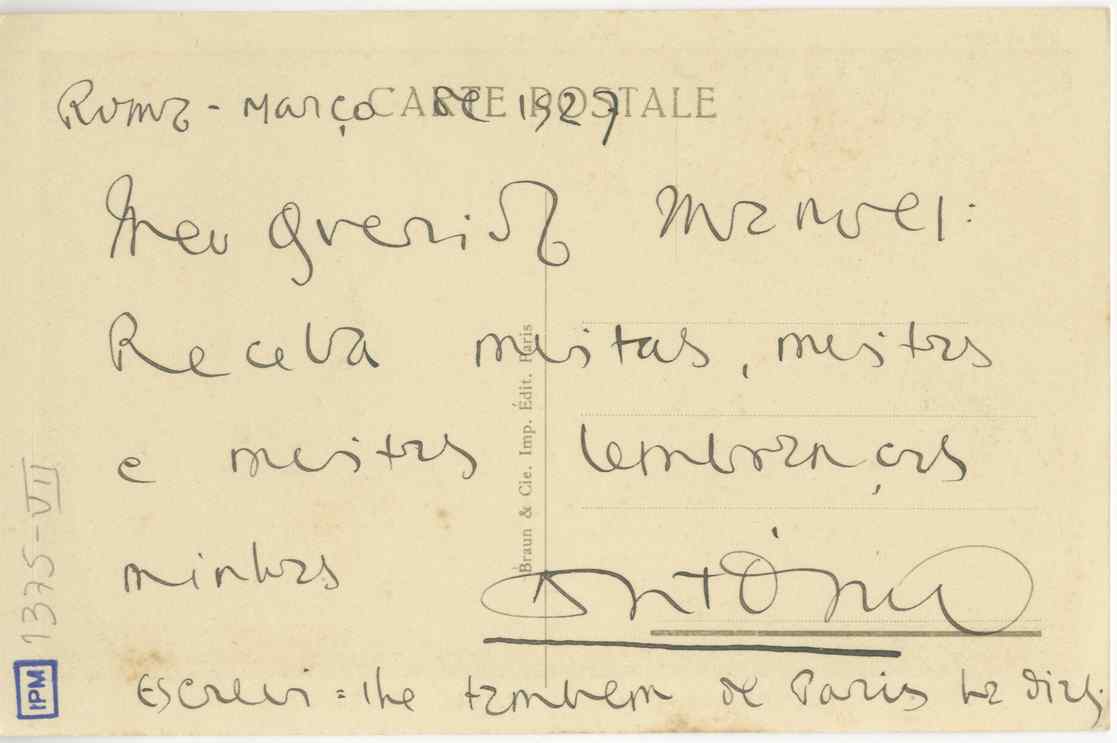 CARTE POSTALE
Roma - Março de 1927
Meu Querido Manoel:
Receba muitas, muitas
e muitas lembranças
minhas
António
Escrevi=lhe tambem de Paris ha dias.
Braun & Cie. Imp. Édit. Paris
1375-VII
IPM